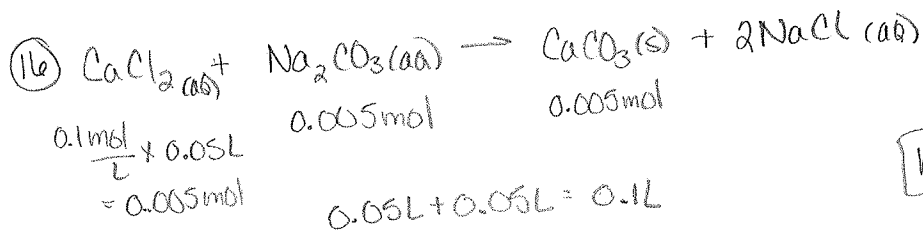 16 CaCl₂(aq) + Na₂CO₃(aq) → CaCO₃(s) + 2NaCl(aq)
0.1mol/L × 0.05L = 0.005mol
0.005mol
0.005mol
0.05L + 0.05L = 0.1L